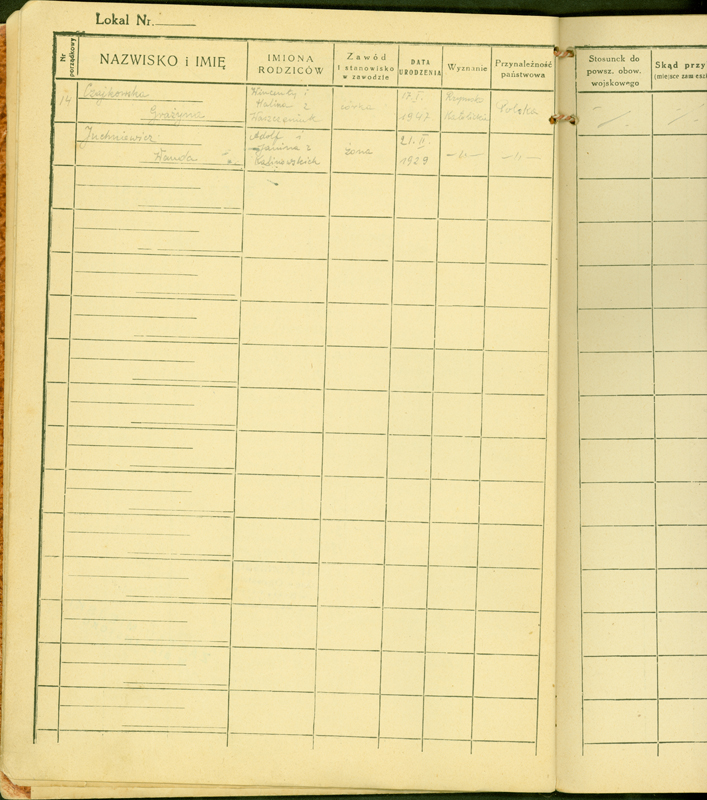 Lokal Nr.
Nr porządkowy
NAZWISKO i IMIĘ
IMIONA
RODZICÓW
Zawód
i stanowisko
w zawodzie
DATA
URODZENIA
Wyznanie
Przynależność
państwowa
Stosunek do
powsz. obow.
wojskowego
Skąd przy
(miejsce zamiesz
14
Czajkowska
Grażyna
Wincenty i
Halina z
córka
17. I.
1947
Rzymsk.
Katolickie
Polska
Juchniewicz
Wanda
Adolf i
Janina z
Kalinowskich
żona
21. II.
1929
—„—
—„—